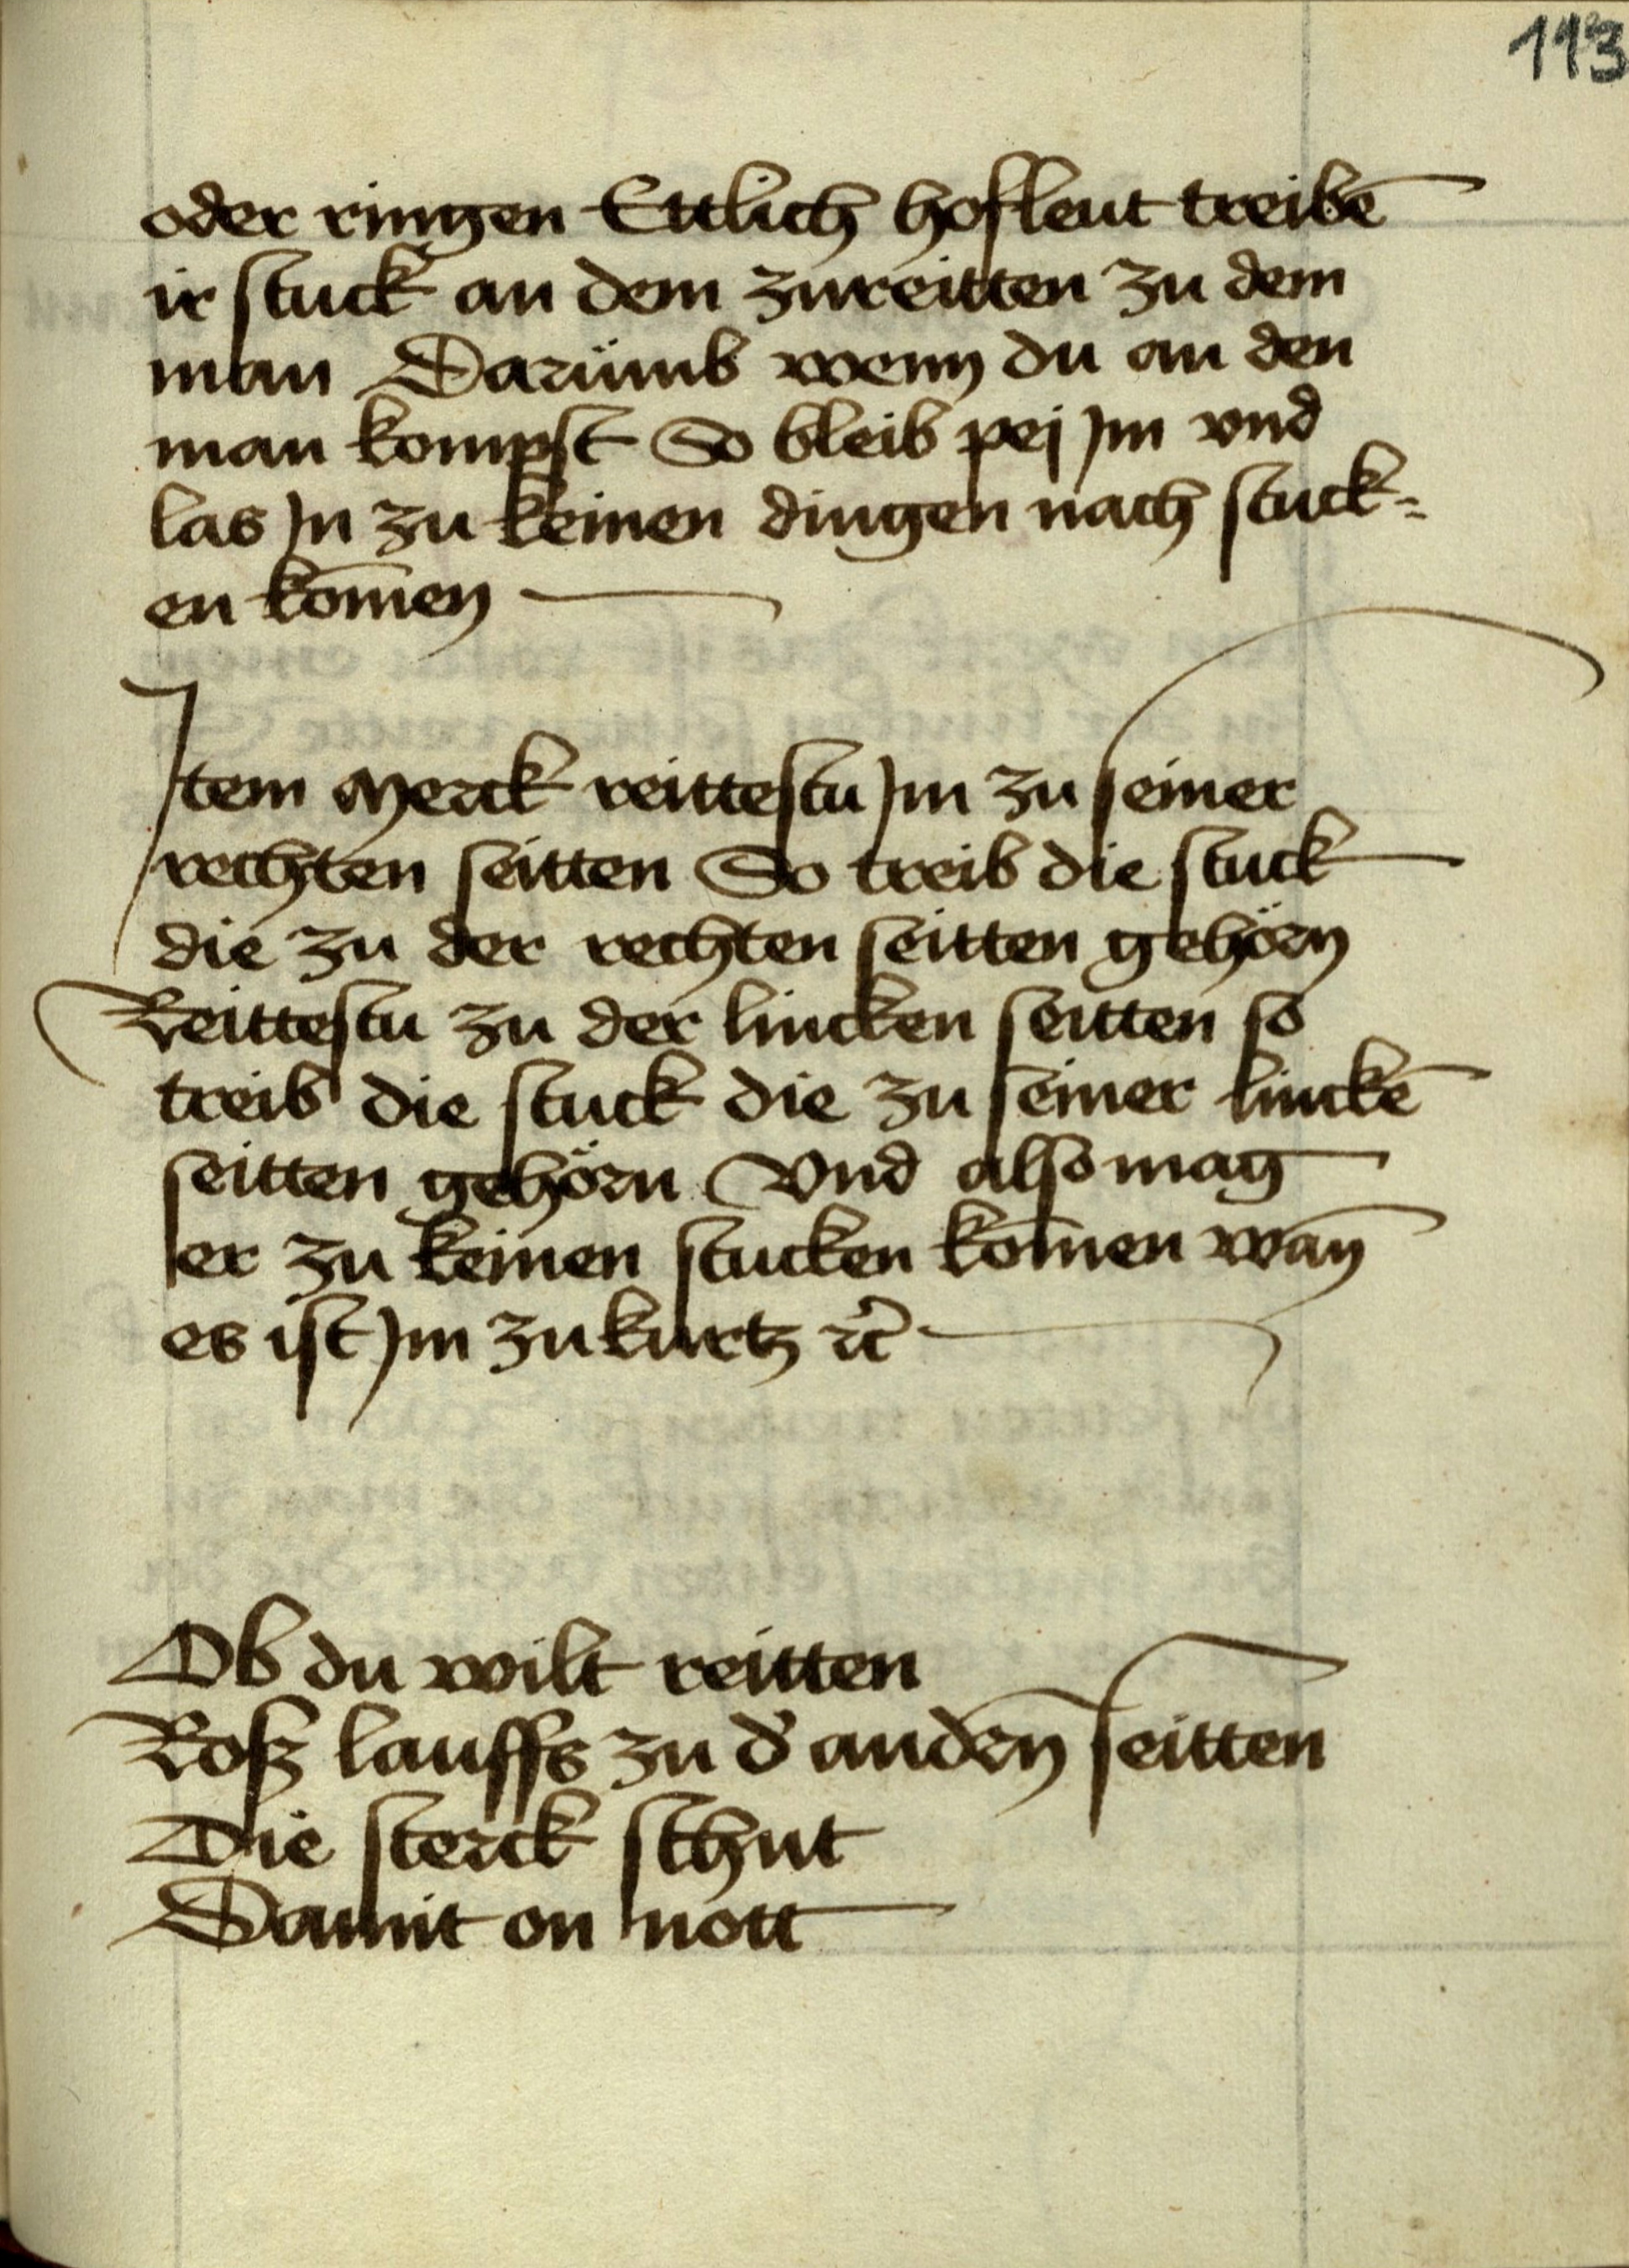 113
oder ringen Ettlich hofleut treibē
ir stuck an dem zureitten zu dem
man Darümb wenn du an den
man kompst So bleib pej Jm vnd
las Jn zu keinen dingen nach stuck=
en kom̄en
Jtem Merck reittestu Jm zu seiner
rechten seitten So treib die stuck
die zu der rechten seitten gehörn
Reittestu zu der lincken seitten so
treib die stuck die zu seiner linckē
seitten gehörn Vnd also mag
er zu keinen stucken kom̄en wan̄
es ist Jm zu kurtz ⁊c̃
Ob du wilt reitten
Rosz lauffs zu d' andern̄ seitten
Die sterck schut
Damit on nott